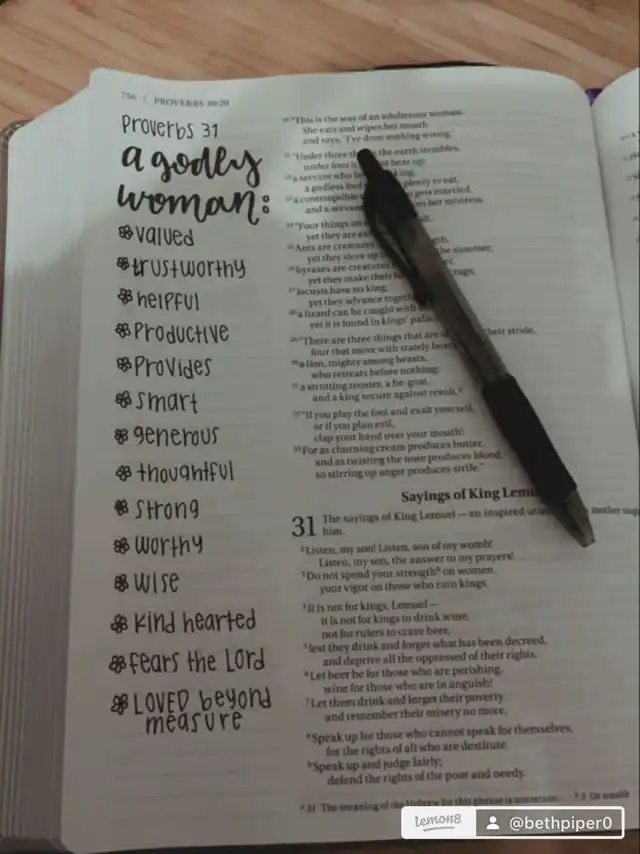 756 | PROVERBS 30:20
Proverbs 31
a godly
woman:
valued
trustworthy
helpful
Productive
Provides
Smart
generous
thoughtful
Strong
worthy
wise
kind hearted
fears the Lord
LOVED beyond
measure
20 "This is the way of an adulterous woman:
She eats and wipes her mouth
and says, 'I've done nothing wrong.'
21 "Under three the earth trembles,
under four it bear up:
22 a servant who be king,
a godless fool plenty to eat,
23 a contemptible gets married,
and a servant her mistress.
24 "Four things on
yet they are
25 Ants are creatures
yet they store up the summer;
26 hyraxes are creatures
yet they make their crags;
27 locusts have no king,
yet they advance together
28 a lizard can be caught with
yet it is found in kings' palaces.
29 "There are three things that are their stride,
four that move with stately
30 a lion, mighty among beasts,
who retreats before nothing;
31 a strutting rooster, a he-goat,
and a king secure against revolt.
32 "If you play the fool and exalt yourself,
or if you plan evil,
clap your hand over your mouth!
33 For as churning cream produces butter,
and as twisting the nose produces blood,
so stirring up anger produces strife."
Sayings of King
31 The sayings of King Lemuel — an inspired mother
him.
2 Listen, my son! Listen, son of my womb!
Listen, my son, the answer to my prayers!
3 Do not spend your strength on women,
your vigor on those who ruin kings.
4 It is not for kings, Lemuel —
it is not for kings to drink wine,
not for rulers to crave beer,
5 lest they drink and forget what has been decreed,
and deprive all the oppressed of their rights.
6 Let beer be for those who are perishing,
wine for those who are in anguish!
7 Let them drink and forget their poverty
and remember their misery no more.
8 Speak up for those who cannot speak for themselves,
for the rights of all who are destitute.
9 Speak up and judge fairly;
defend the rights of the poor and needy.
31 The meaning of the Hebrew for this phrase is uncertain. 3 Or wealth
lemon8 @bethpiper0